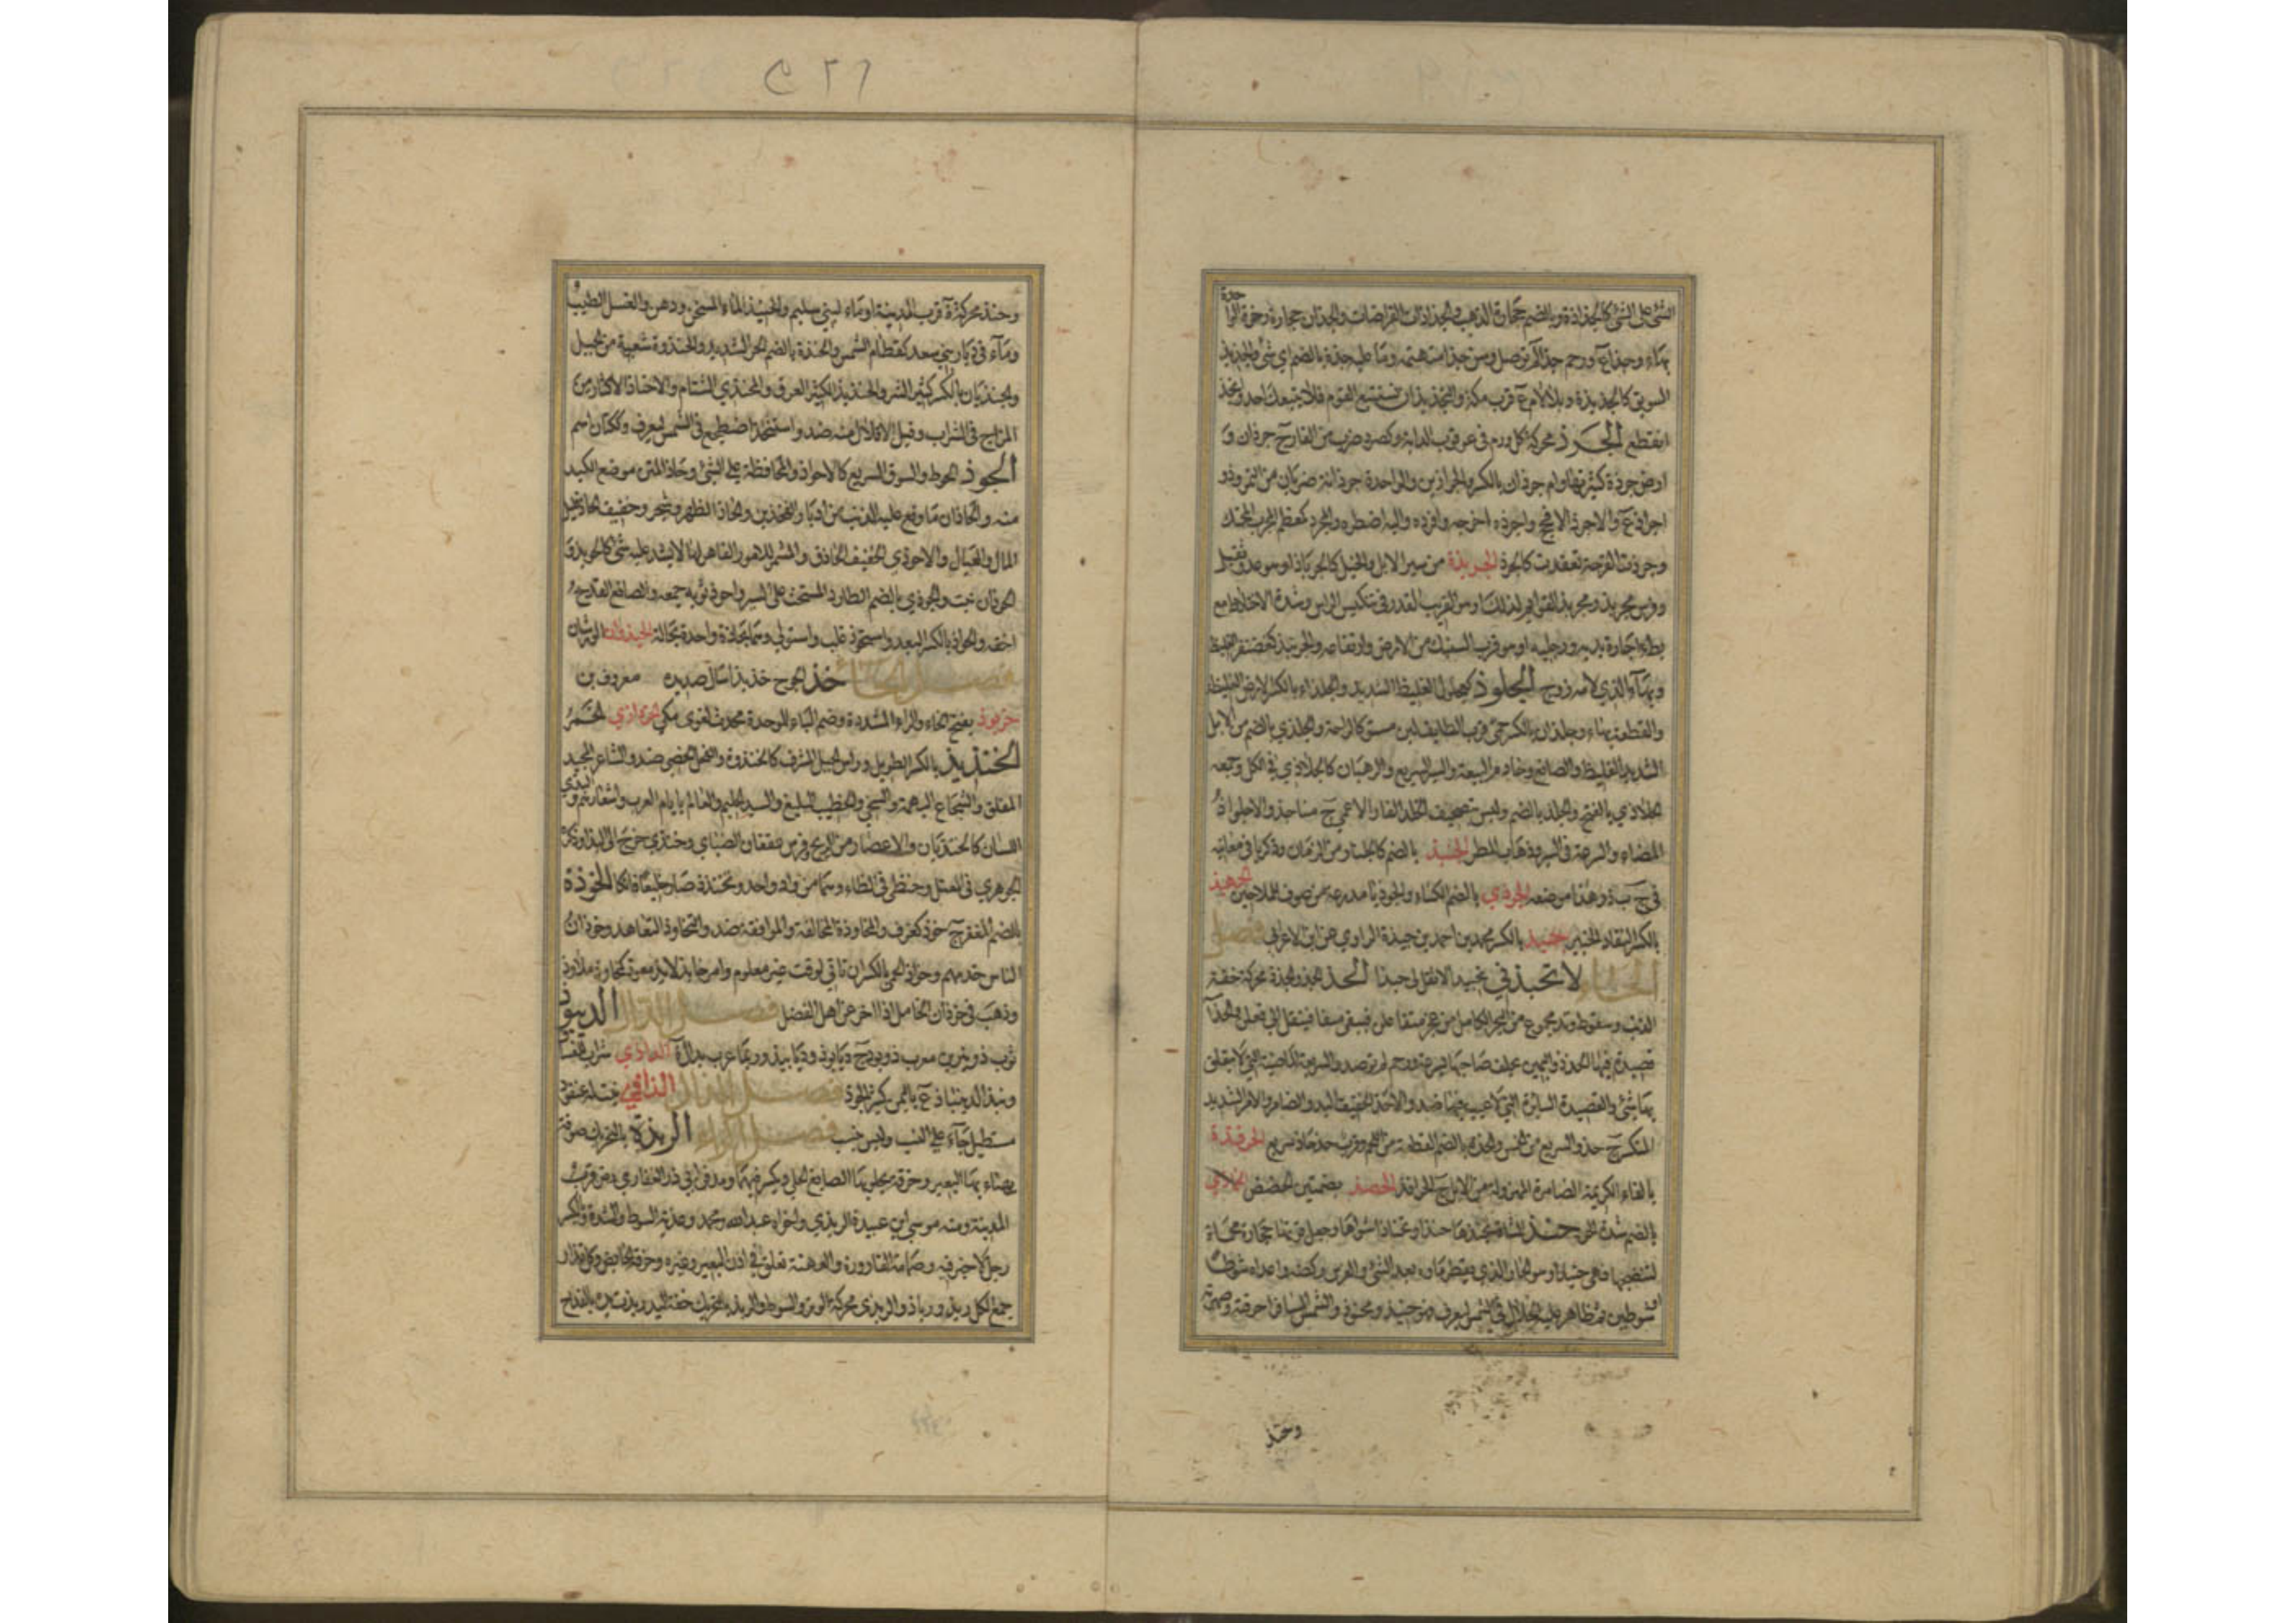 الشئ على الشئ كالجذاذة وبالضم حجارة الذهب والجذاذات القراضات والجذان حجارة رخوة الواحدة
بهاء وجذاء ع ورحم جذاء لم توصل وسن جذاء متهتمة وما عليه جذة بالضم اي شئ والجذيذ
السويق كالجذيذة وبلا لام ع قرب مكة والتجذيذ ان تستتبع القوم فلا يتبعك احد وانجذ
انقطع الجرذ محركة كل ورم في عرقوب الدابة وكصرد ضرب من الفار ج جرذان و
ارض جرذة كثيرتها وام جرذان بالكسر والجراذين والواحدة جرذانة ضربان من التمر وذو
اجراذ ع والاجرذ الافحج واجرذه اخرجه وافرده واليه اضطره والمجرذ كمعظم المجرب المحنك
وجرذت القرحة تعقدت كالجرذ الجربذة من سير الابل والخيل كالجرباذ او هو عدو ثقيل
وفرس مجربذ ومجربذ القوائم لذلك او هو القريب القدر في تنكيس الراس وشدة الاختلاط مع
بطء اجارة يديه ورجليه او هو قرب السنبك من الارض وارتفاعه والجرنبذ كغضنفر الغليظ
وبهاء الذي لامه زوج الجلوذ كعجول الغليظ الشديد والجلذاء بالكسر الارض الغليظة
والقطعة بهاء وجلذان بالكسر حمى قرب الطايف لين مستو كالراحة والجلذي بالضم من الابل
الشديد الغليظ والصانع وخادم البيعة والسير السريع والرهبان كالجلاذي في الكل وجمعه
الجلاذي بالفتح والجلذ بالضم وليس بتصحيف الخلد الفار الاعمى ج مناجذ والاجلواذ
المضاء والسرعة في السير وذهاب المطر الجنبذ بالضم كالجلنار من الرمان وذكر باقي معانيه
في ج ب ذ وهذا موضعه الجوذي بالضم الكساء والجوذياء مدرعة من صوف للملاحين الجهبذ
بالكسر النقاد الخبير جيذ بالكسر محمد بن احمد بن جيذة الراوي عن ابن الاعرابي فصل
الحاء لا تحبذني تحبيذا لا تقل لي حبذا الحذ الجذ والحذة محركة خفة
الذنب وسقوط وتد مجموع من البحر الكامل من عجز متفاعلن فيبقى متفا فينقل الى فعلن والحذاء
قصيدة فيها الحذذ واليمين يحلف صاحبها بسرعة ورحم لم توصل والسريعة الماضية التي لا يتعلق
بها شئ والقصيدة السائرة التي لا عيب فيها ضد والاحذ الخفيف اليد والضامر والامر الشديد
المنكر ج حذ والسريع من الخمس والحذة بالضم القطعة من اللحم وقرب حذحاذ سريع الحرفذة
بالفاء الكريمة الضامرة المهزولة من الابل ج الحرافذ الحضذ بضمتين الحضض الحماذي
بالضم شدة الحر حنذ الشاة يحنذها حنذا وتحناذا شواها وجعل فوقها حجارة محماة
لتنضجها فهي حنيذ او هو الحار الذي يقطر ماؤه بعد الشئ والفرس ركضه واعداه شوطا
او شوطين ثم ظاهر عليه الجلال في الشمس ليعرق فهو حنيذ ومحنوذ والشمس المسافر احرقته وصهرته
وحنذ
٤٢٦
وحنذ محركة ة قرب المدينة او ماء لبني سليم والحنيذ الماء المسخن ودهن والغسل المطيب
وماء في ديار بني سعد كقطام الشمس والحنذة بالضم الحر الشديد والحنذوة شعبة من الجبل
والحنذيان بالكسر كثير الشر والحنذيذ الكثير العرق والحنذي الشتام والاحناذ الاكثار من
المزاج في الشراب وقيل الاقلال منه ضد واستحنذ اضطجع في الشمس ليعرق وككتان اسم
الحوذ الحوط والسوق السريع كالاحواذ والمحافظة على الشئ وحاذ المتن موضع اللبد
منه والحاذان ما وقع عليه الذنب من ادبار الفخذين والحاذ الظهر وشجر وخفيف الحاذ قليل
المال والعيال والاحوذي الخفيف الحاذق والمشمر للامور القاهر لها لا يشذ عليه شئ كالحويذ و
الحوذان نبت والحوذي بالضم الطارد المستحث على السير واحوذ ثوبه جمعه والصانع القدح
اخفه والحواذ بالكسر البعد واستحوذ غلب واستولى وهما بحاذة واحدة بحالة الحيذوان الورشان
فصل الخاء خذ الجرح خذيذا سال صديده معروف بن
خربوذ بفتح الخاء والراء المشددة وضم الباء الموحدة محدث لغوي مكي الخرذاذي الخمر
الخنذيذ بالكسر الطويل وراس الجبل المشرف كالخنذوة والفحل الخصي ضد والشاعر المجيد
المفلق والشجاع البهمة والسخي والخطيب البليغ والسيد الحليم والعالم بايام العرب واشعارهم والبذي
اللسان كالخنذيان والاعصار من الريح وفرس عقفان الضبابي وخنذى خرج الى البذا وذكره
الجوهري في المعتل وخنظى في الظاء وهما من واد واحد وتخنذذ صار خليعا فاتكا الخوذة
بالضم المغفر ج خوذ كغرف والمخاوذة المخالفة والموافقة ضد والتخاوذ التعاهد وخوذان
الناس خدمهم وخواذ الحمى بالكسر ان تاتي لوقت غير معلوم وامر خايذ لايذ معوز كمخاوذ ملاوذ
وذهب في خوذان الخامل اذا اخر عن اهل الفضل فصل الدال الديبوذ
ثوب ذو نيرين معرب ذوبود ج ديابوذ وديابيذ وربما عرب بدال الداذي شراب للفساق
فصل الذال الذاذي نبت له عنقود
مستطيل جاء على النسب وليس بنسب فصل الراء الربذة بالتحريك صوفة
يهنأ بها البعير وخرقة يجلى بها الصانع الحلي ويكسر فيهما ومدفن ابي ذر الغفاري رض قرب
المدينة ومنه موسى بن عبيدة الربذي واخواه عبد الله ومحمد وعذبة السوط والشدة وبالكسر
رجل لا خير فيه وصمامة القارورة والعهنة تعلق في اذن البعير وغيره وخرقة الحايض وكل قذر
جمع الكل ربذ ورباذ والربذي محركة الوتر والسوط والربذ بالتحريك خفة اليد ربذت يده بالقداح